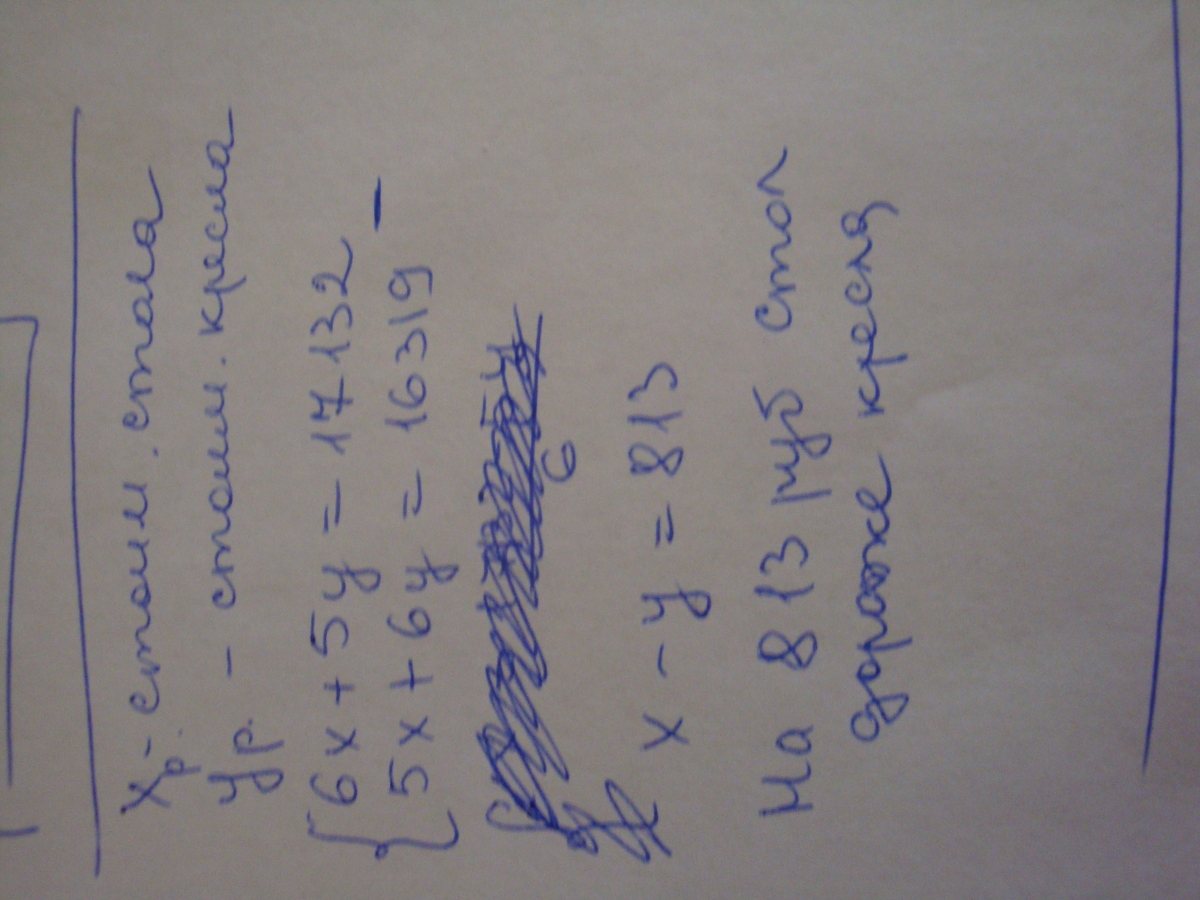 xр. - стоим. стола
yр. - стоим. кресла
{ 6x + 5y = 17132
5x + 6y = 16319 -
6
x - y = 813
На 813 руб стол
дороже кресла